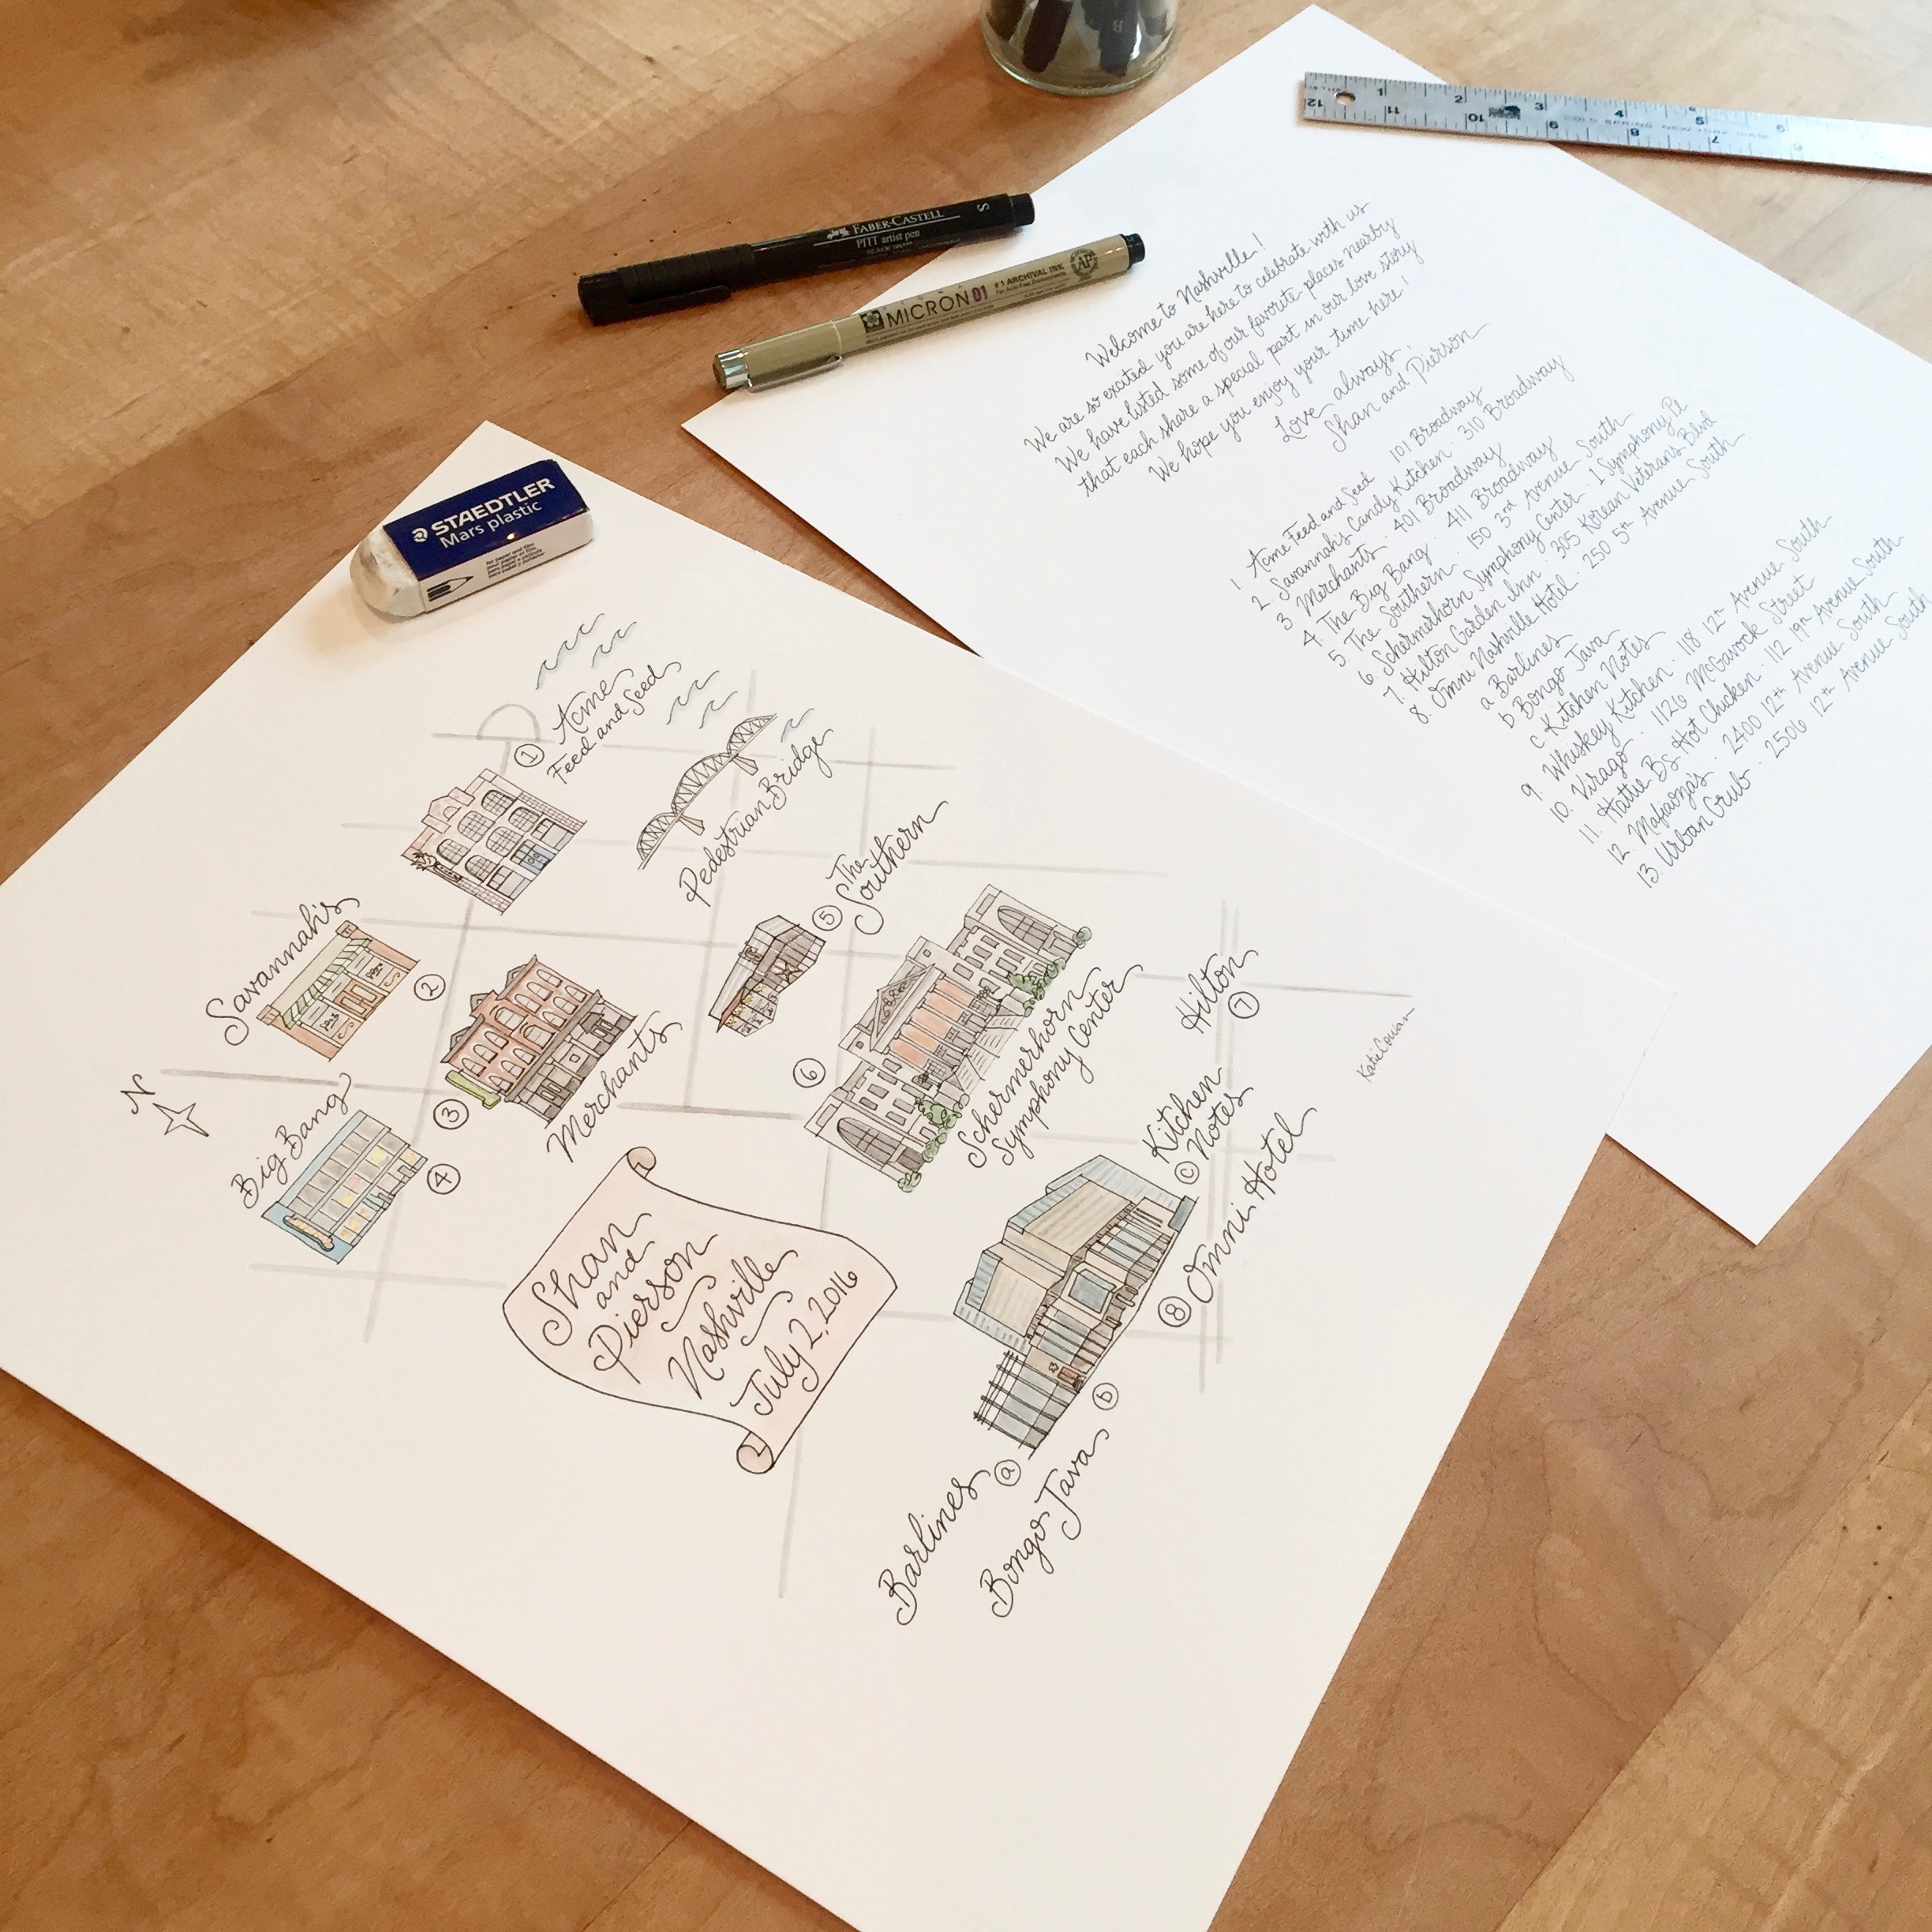 FABER-CASTELL
PITT artist pen
S
MICRON 01
#1 ARCHIVAL INK
AP
STAEDTLER
Mars plastic
Welcome to Nashville!
We are so excited you are here to celebrate with us
We have listed some of our favorite places nearby
that each share a special part in our love story
We hope you enjoy your time here!
Love always,
Shan and Pierson
1. Acme Feed and Seed 101 Broadway
2. Savannah's Candy Kitchen · 310 Broadway
3. Merchants · 401 Broadway
4. The Big Bang · 411 Broadway
5. The Southern · 150 3rd Avenue South
6. Schermerhorn Symphony Center · 1 Symphony Pl
7. Hilton Garden Inn · 305 Korean Veterans Blvd
8. Omni Nashville Hotel · 250 5th Avenue South
a Barlines
b Bongo Java
c Kitchen Notes
9. Whiskey Kitchen · 118 12th Avenue South
10. Virago · 1126 McGavock Street
11. Hattie B's Hot Chicken · 112 19th Avenue South
12. Mafiaoza's · 2400 12th Avenue South
13. Urban Grub · 2506 12th Avenue South
1 Acme
Feed and Seed
Pedestrian Bridge
Savannah's
2
5 The
Southern
N
Big Bang
3
Merchants
4
6
Schermerhorn
Symphony Center
Hilton
7
Katie Cowan
Kitchen
c Notes
8 Omni Hotel
Shan
and
Pierson
Nashville
July 2, 2016
Barlines a
Bongo Java b